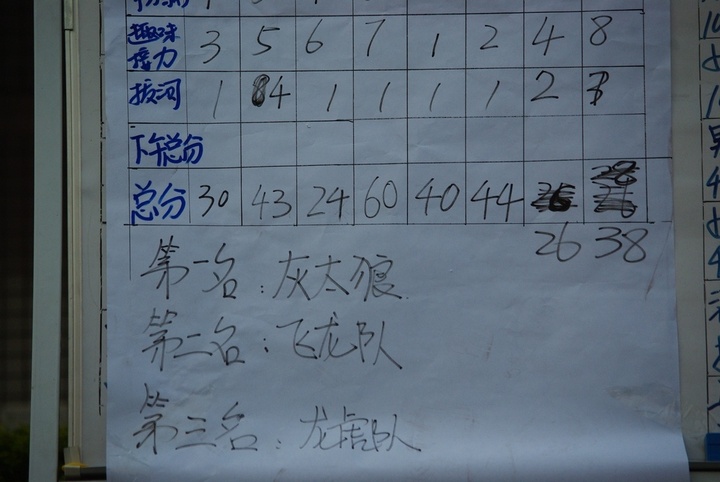 趣味 3 5 6 7 1 2 4 8
接力
拔河 1 4 1 1 1 1 2
下午总分
总分 30 43 24 60 40 44
26 38
第一名：灰太狼
第二名：飞龙队
第三名：龙虎队